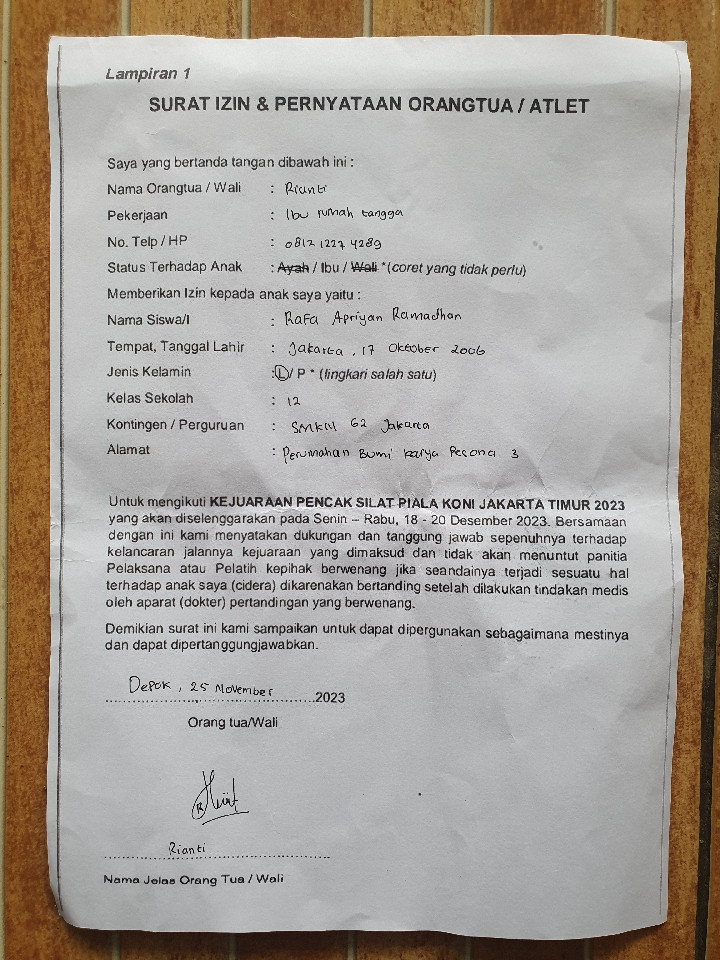 Lampiran 1
SURAT IZIN & PERNYATAAN ORANGTUA / ATLET
Saya yang bertanda tangan dibawah ini :
Nama Orangtua / Wali : Rianti
Pekerjaan : Ibu rumah tangga
No. Telp / HP : 0812 1227 4289
Status Terhadap Anak : Ayah / Ibu / Wali *(coret yang tidak perlu)
Memberikan Izin kepada anak saya yaitu :
Nama Siswa/I : Rafa Apriyan Ramadhan
Tempat, Tanggal Lahir : Jakarta, 17 Oktober 2006
Jenis Kelamin : L/ P * (lingkari salah satu)
Kelas Sekolah : 12
Kontingen / Perguruan : SMKN 62 Jakarta
Alamat : Perumahan Bumi Karya Pesona 3
Untuk mengikuti KEJUARAAN PENCAK SILAT PIALA KONI JAKARTA TIMUR 2023
yang akan diselenggarakan pada Senin – Rabu, 18 - 20 Desember 2023. Bersamaan
dengan ini kami menyatakan dukungan dan tanggung jawab sepenuhnya terhadap
kelancaran jalannya kejuaraan yang dimaksud dan tidak akan menuntut panitia
Pelaksana atau Pelatih kepihak berwenang jika seandainya terjadi sesuatu hal
terhadap anak saya (cidera) dikarenakan bertanding setelah dilakukan tindakan medis
oleh aparat (dokter) pertandingan yang berwenang.
Demikian surat ini kami sampaikan untuk dapat dipergunakan sebagaimana mestinya
dan dapat dipertanggungjawabkan.
Depok, 25 November 2023
Orang tua/Wali
Rianti
Nama Jelas Orang Tua / Wali